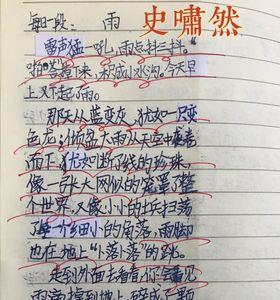 每日一段： 雨
史啸然
雷声猛一吼，雨点抖三抖。
啪答掉下来，积成小水沟。今天早
上又下起了雨。
那天从蓝变灰，犹如一只变
色龙；倾盆大雨从天空中袭卷
而下，犹如断了线的珍珠，
像一张大网似的笼罩了整
个世界，又像小小的士兵扫荡
了每一个细小的角落，雨脚
也在地上“卜落卜落”的跳。
走到外面去看看，你会看见
雨滴撞到地上，碎成了颗